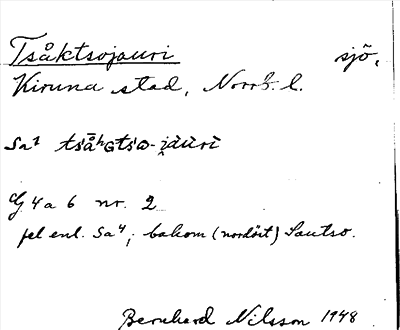 Tsåktsojauri sjö,
Kiruna stad, Norrb. l.
Sa¹ tså̄ʰGtso-i̯àuri
G 4 a 6 nr. 2
fel enl. Sa⁴; bakom (nordöst) Sautso.
Bernhard Nilsson 1948